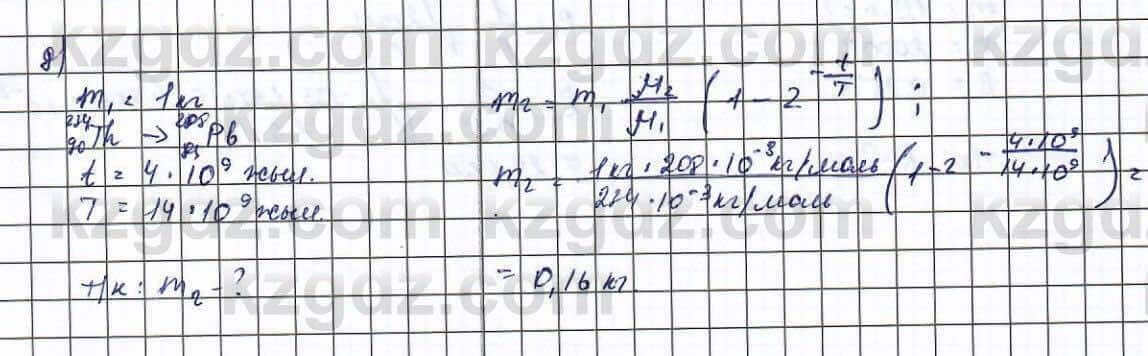 д)
m₁ = 1кг
²³⁴₉₀Th → ²⁰⁸Pb
t = 4 · 10⁹ жыл.
T = 14 · 10⁹ жыл.
т/к: m₂ - ?
m₂ = m₁ M₂/M₁ (1 - 2^(-t/T));
m₂ = 1кг · 208 · 10⁻³ кг/моль / 234 · 10⁻³ кг/моль (1 - 2^(-4·10⁹/14·10⁹)) =
= 0,16 кг.
kzgdz.com kzgdz.com kzgdz.com
kzgdz.com kzgdz.com kzgdz.com
kzgdz.com kzgdz.com kzgdz.com
kzgdz.com kzgdz.com